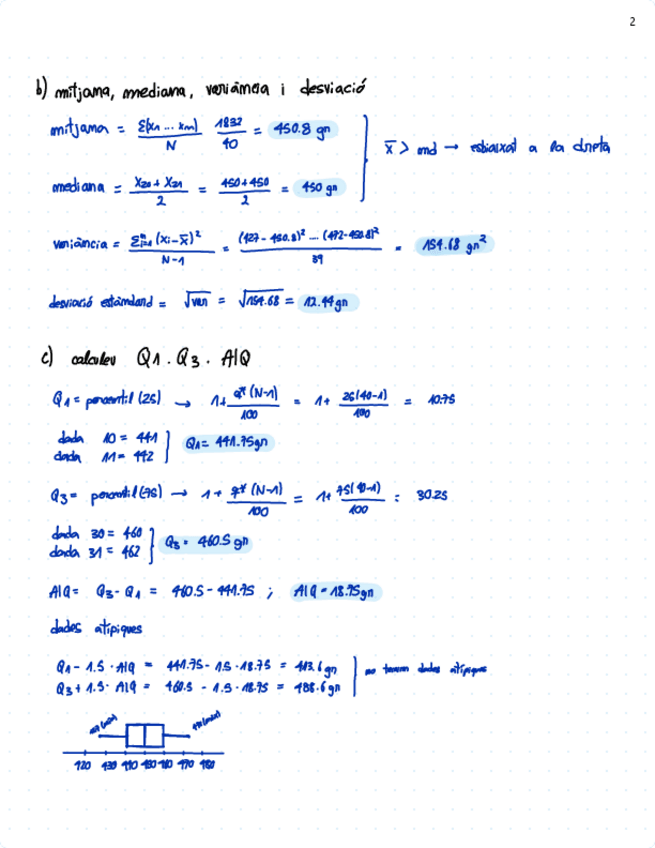 2
b) mitjana, mediana, variància i desviació
mitjana = Σ(x1 ... xn) / N  1832 / 40 = 450.8 gr
x̄ > md → esbiaixat a la dreta
mediana = X20 + X21 / 2 = 450+450 / 2 = 450 gr
variància = Σⁿi=1 (xi-x̄)² / N-1 = (427 - 450.8)² ... (472-450.8)² / 39 = 154.68 gr²
desviació estàndard = √var = √154.68 = 12.44gr
c) calculeu Q1. Q3. AIQ
Q1= percentil (25) → 1+ (N-1) / 100 = 1+ 25(40-1) / 100 = 10.75
dada 10 = 441
dada 11 = 442
Q1= 441.75gr
Q3= percentil(75) → 1+ (N-1) / 100 = 1+ 75(40-1) / 100 = 30.25
dada 30 = 460
dada 31 = 462
Q3= 460.5 gr
AIQ= Q3-Q1 = 460.5 - 441.75 ; AIQ = 18.75gr
dades atípiques
Q1- 1.5 · AIQ = 441.75- 1.5 · 18.75 = 413.6gr
Q3+ 1.5· AIQ = 460.5 - 1.5 · 18.75 = 488.6gr
no tenim dades atípiques
(min) (max)
420 430 440 450 460 470 480